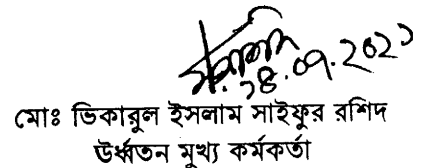 ২৪.০৭.২০২১
মোঃ ভিকারুল ইসলাম সাইফুর রশিদ
উর্ধ্বতন মুখ্য কর্মকর্তা